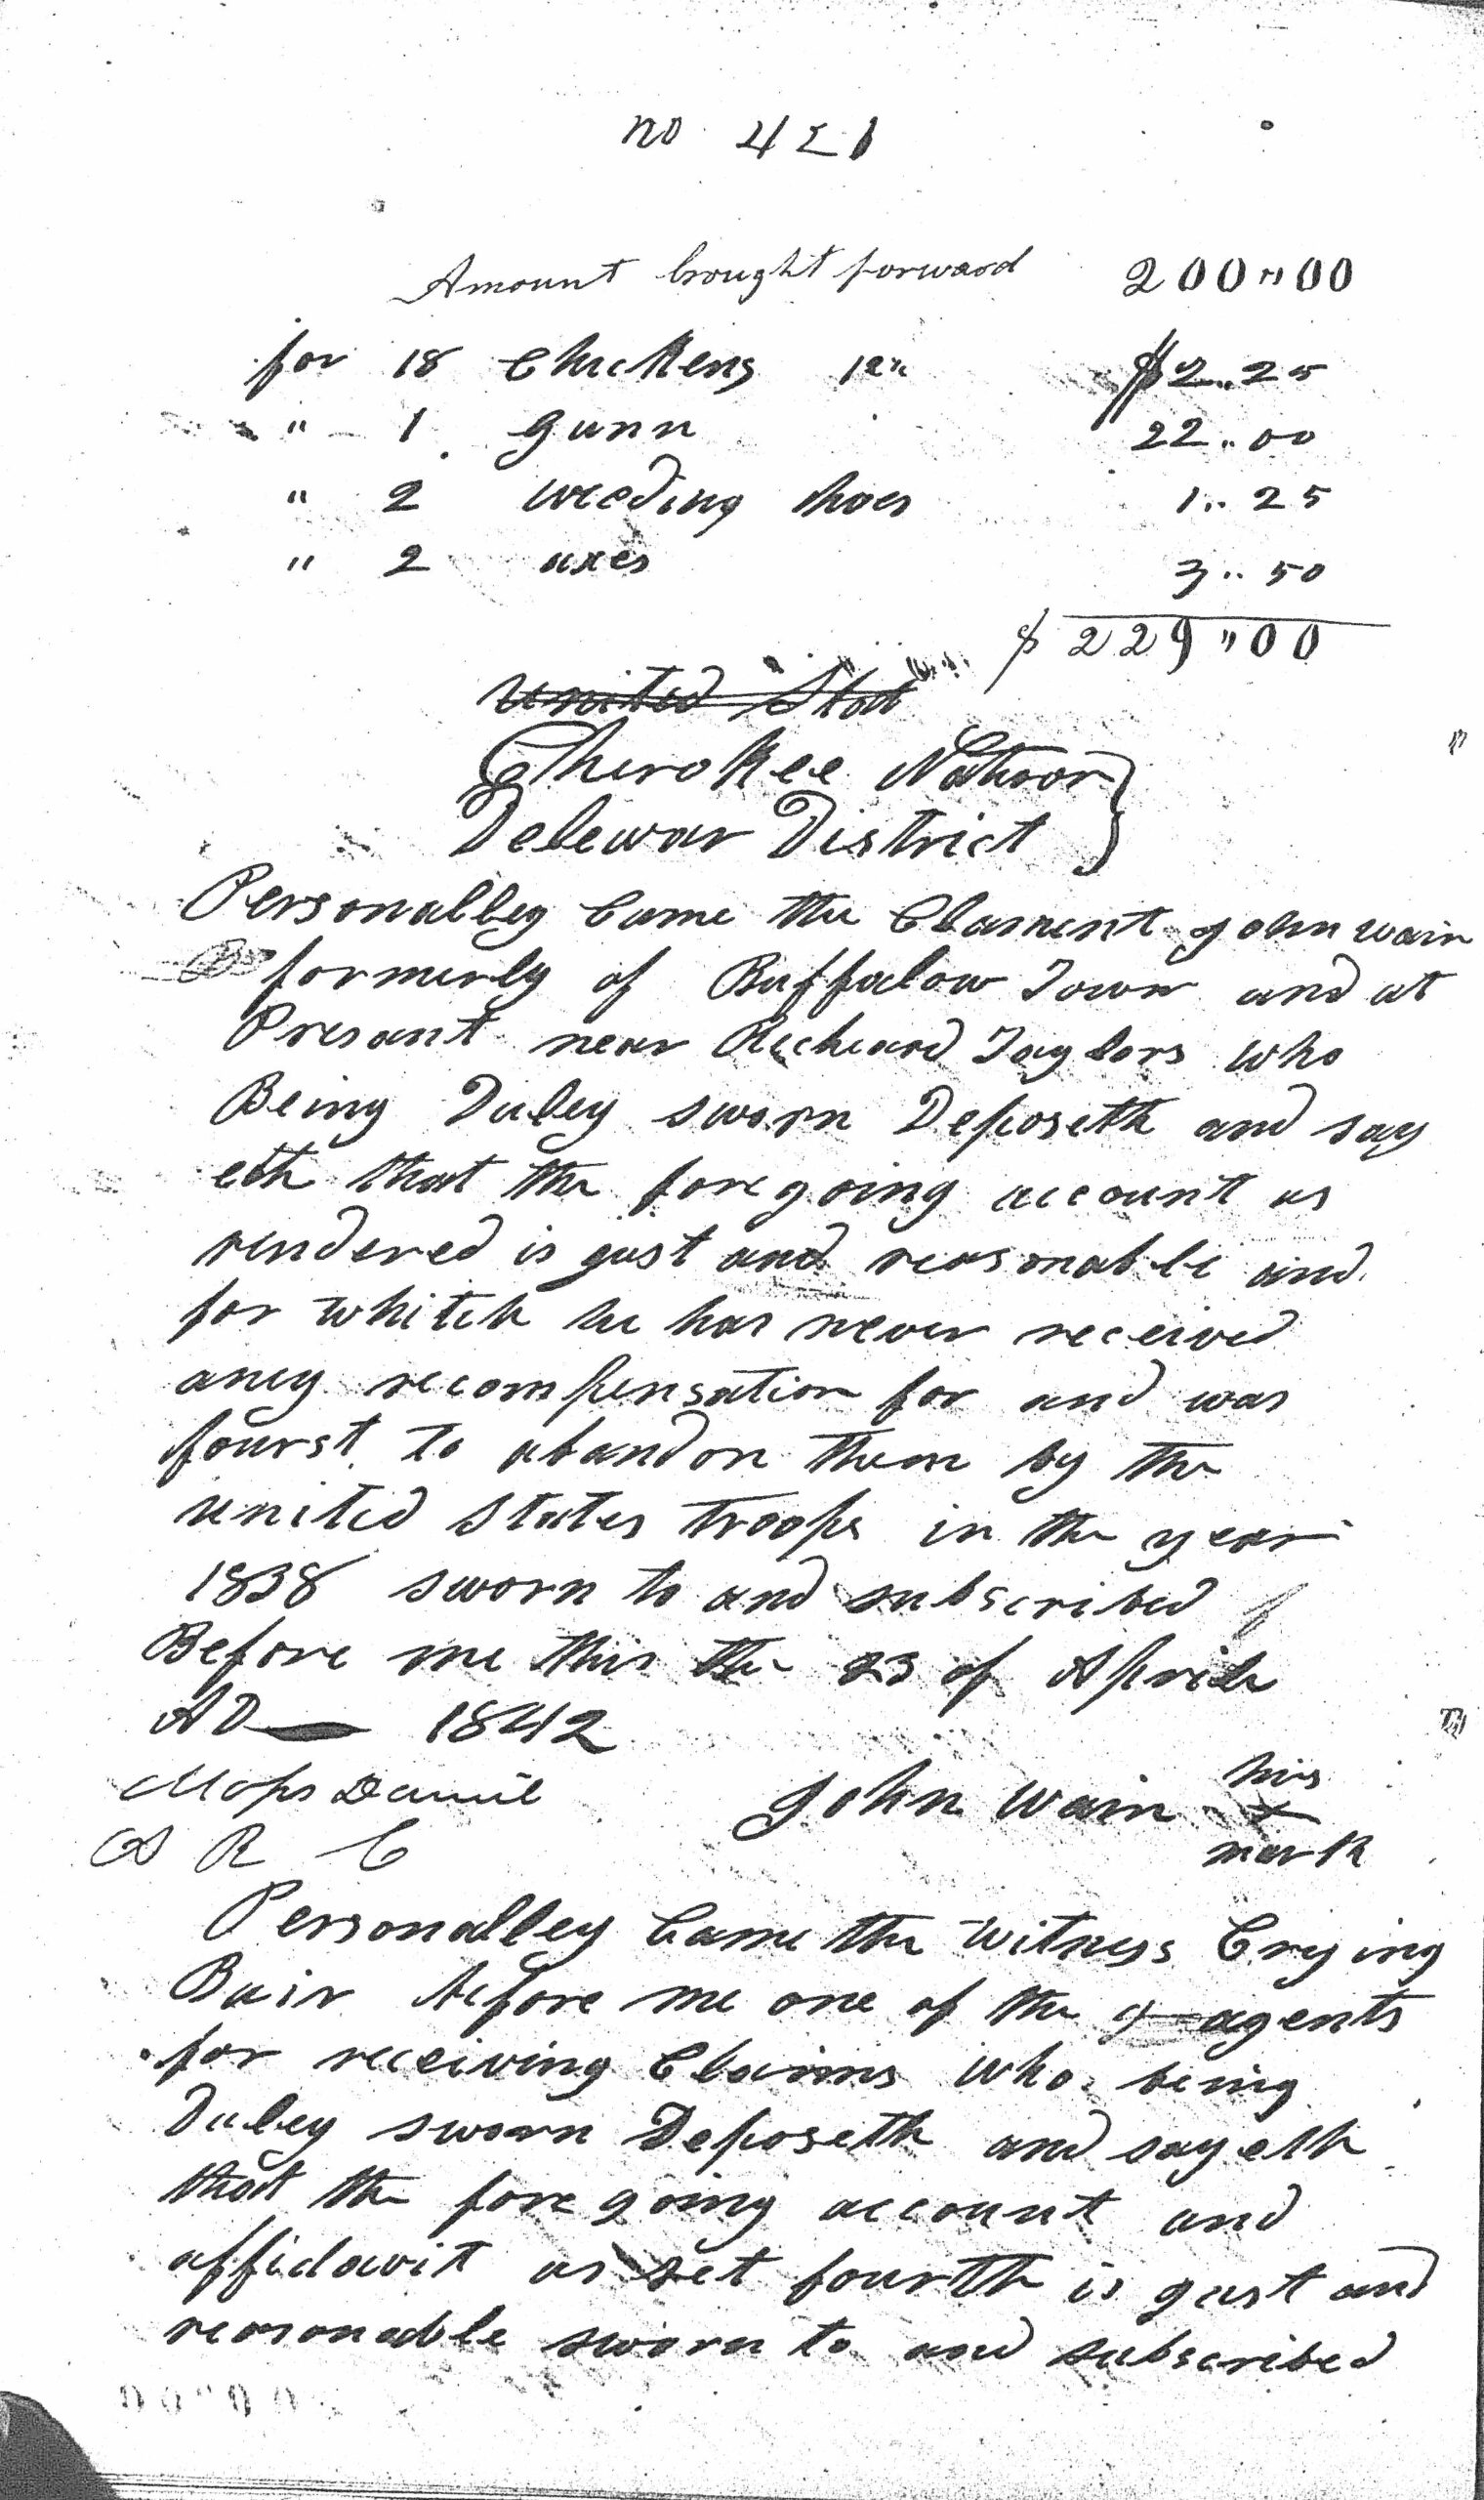 no 421
Amount brought forward 200 " 00
for 18 Chickens 12 " $2 .. 25
" 1 gunn 22 .. 00
" 2 weeding hoes 1 .. 25
" 2 axes 3 .. 50
$ 229 " 00
United Stat
Cherokee Nation }
Delewar District }
Personalley Came the Clament John wain
formerly of Buffalow Town and at
Presant near Richeard Taylors who
Being Duley sworn Deposeth and say
eth that the foregoing account as
rendered is gust and reasonable and
for whitch he has never received
aney recompensation for and was
fourst to abandon them by the
united States troops in the year
1838 sworn to and subscribed
Before me this the 23 of Aprile
AD — 1842
Moses Daniel John wain his
x
mark
A R C
Personalley Came the witness Crying
Bair before me one of the agents
for receiving Claims who being
Duley sworn Deposeth and sayeth
that the foregoing account and
affidavit as set fourth is gust and
reasonable sworn to and subscribed